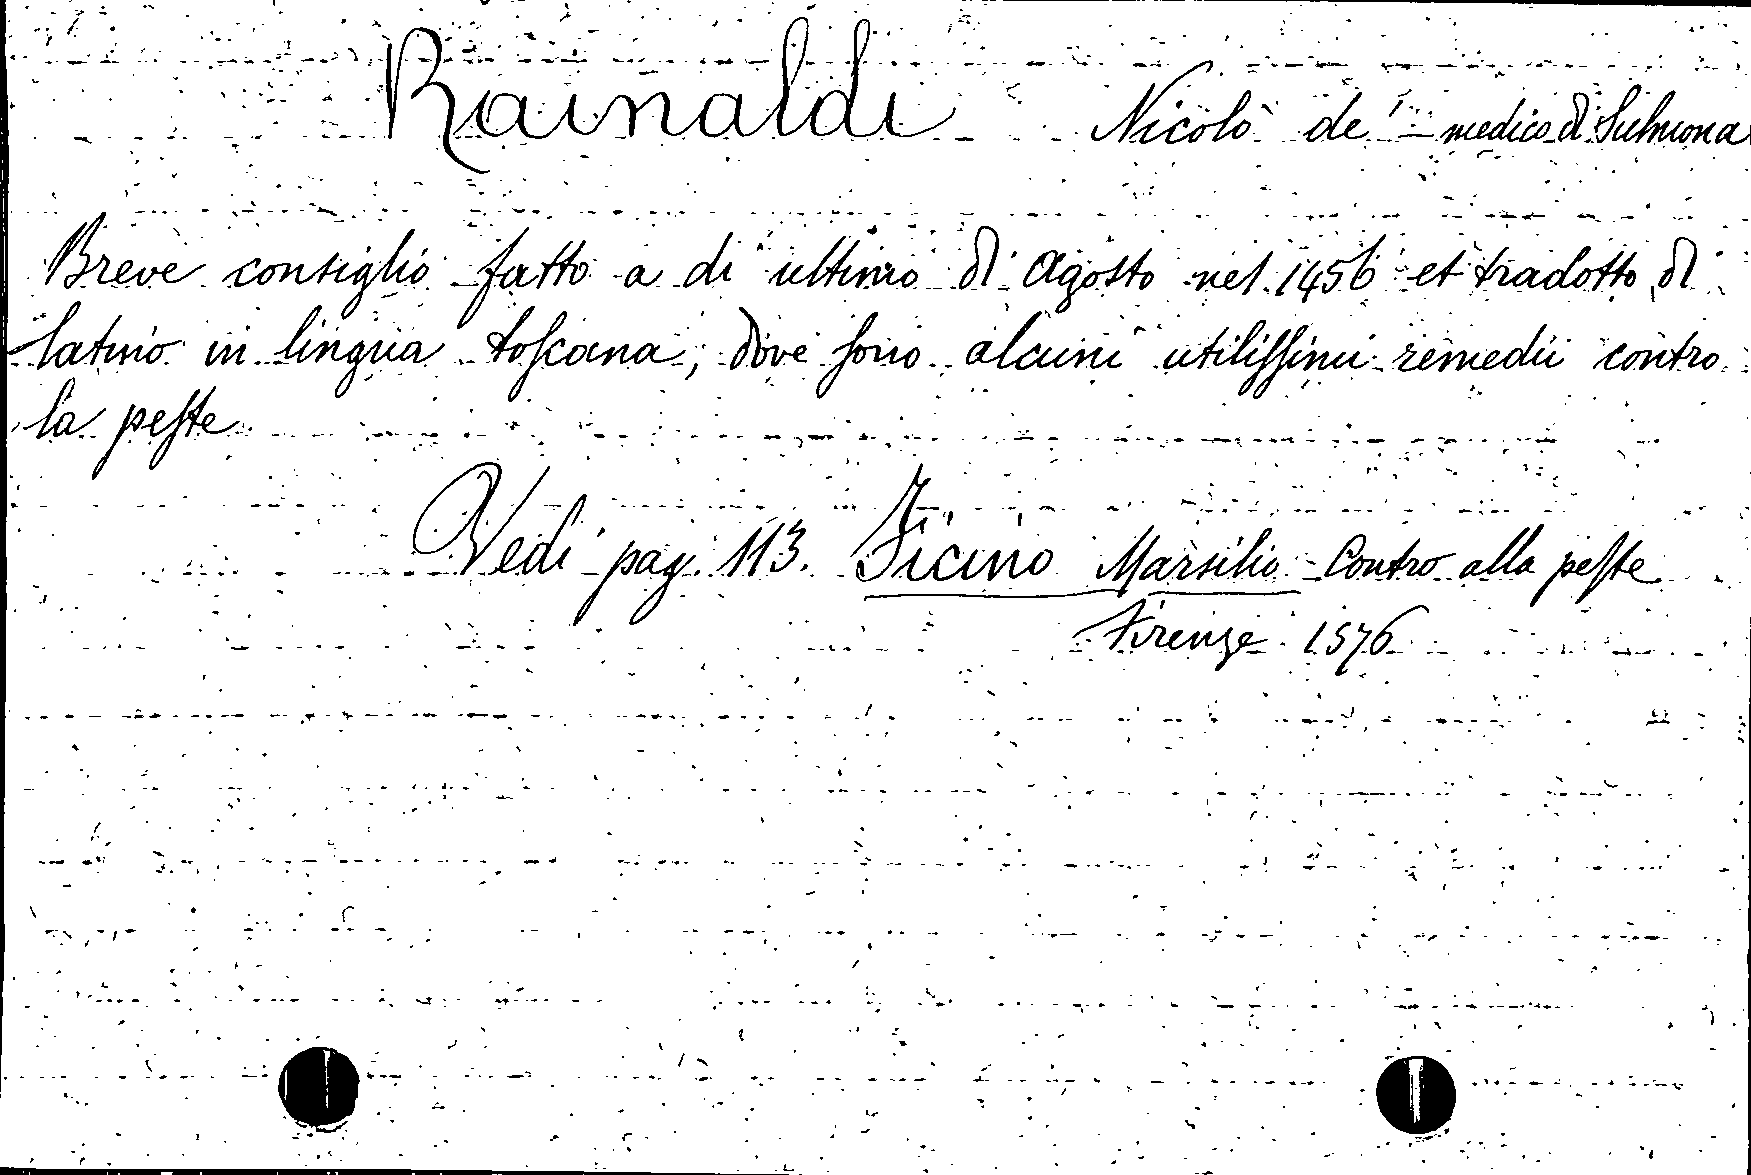 Rainaldi Nicolò de' medico di Sulmona
Breve consiglio fatto a di ultimo di Agosto nel 1456 et tradotto di
latino in lingua toſcana, dove ſono alcuni utiliſſimi remedii contro
la peſte
Vedi pag. 113. Ficino Marsilio Contro alla peſte
Firenze 1576